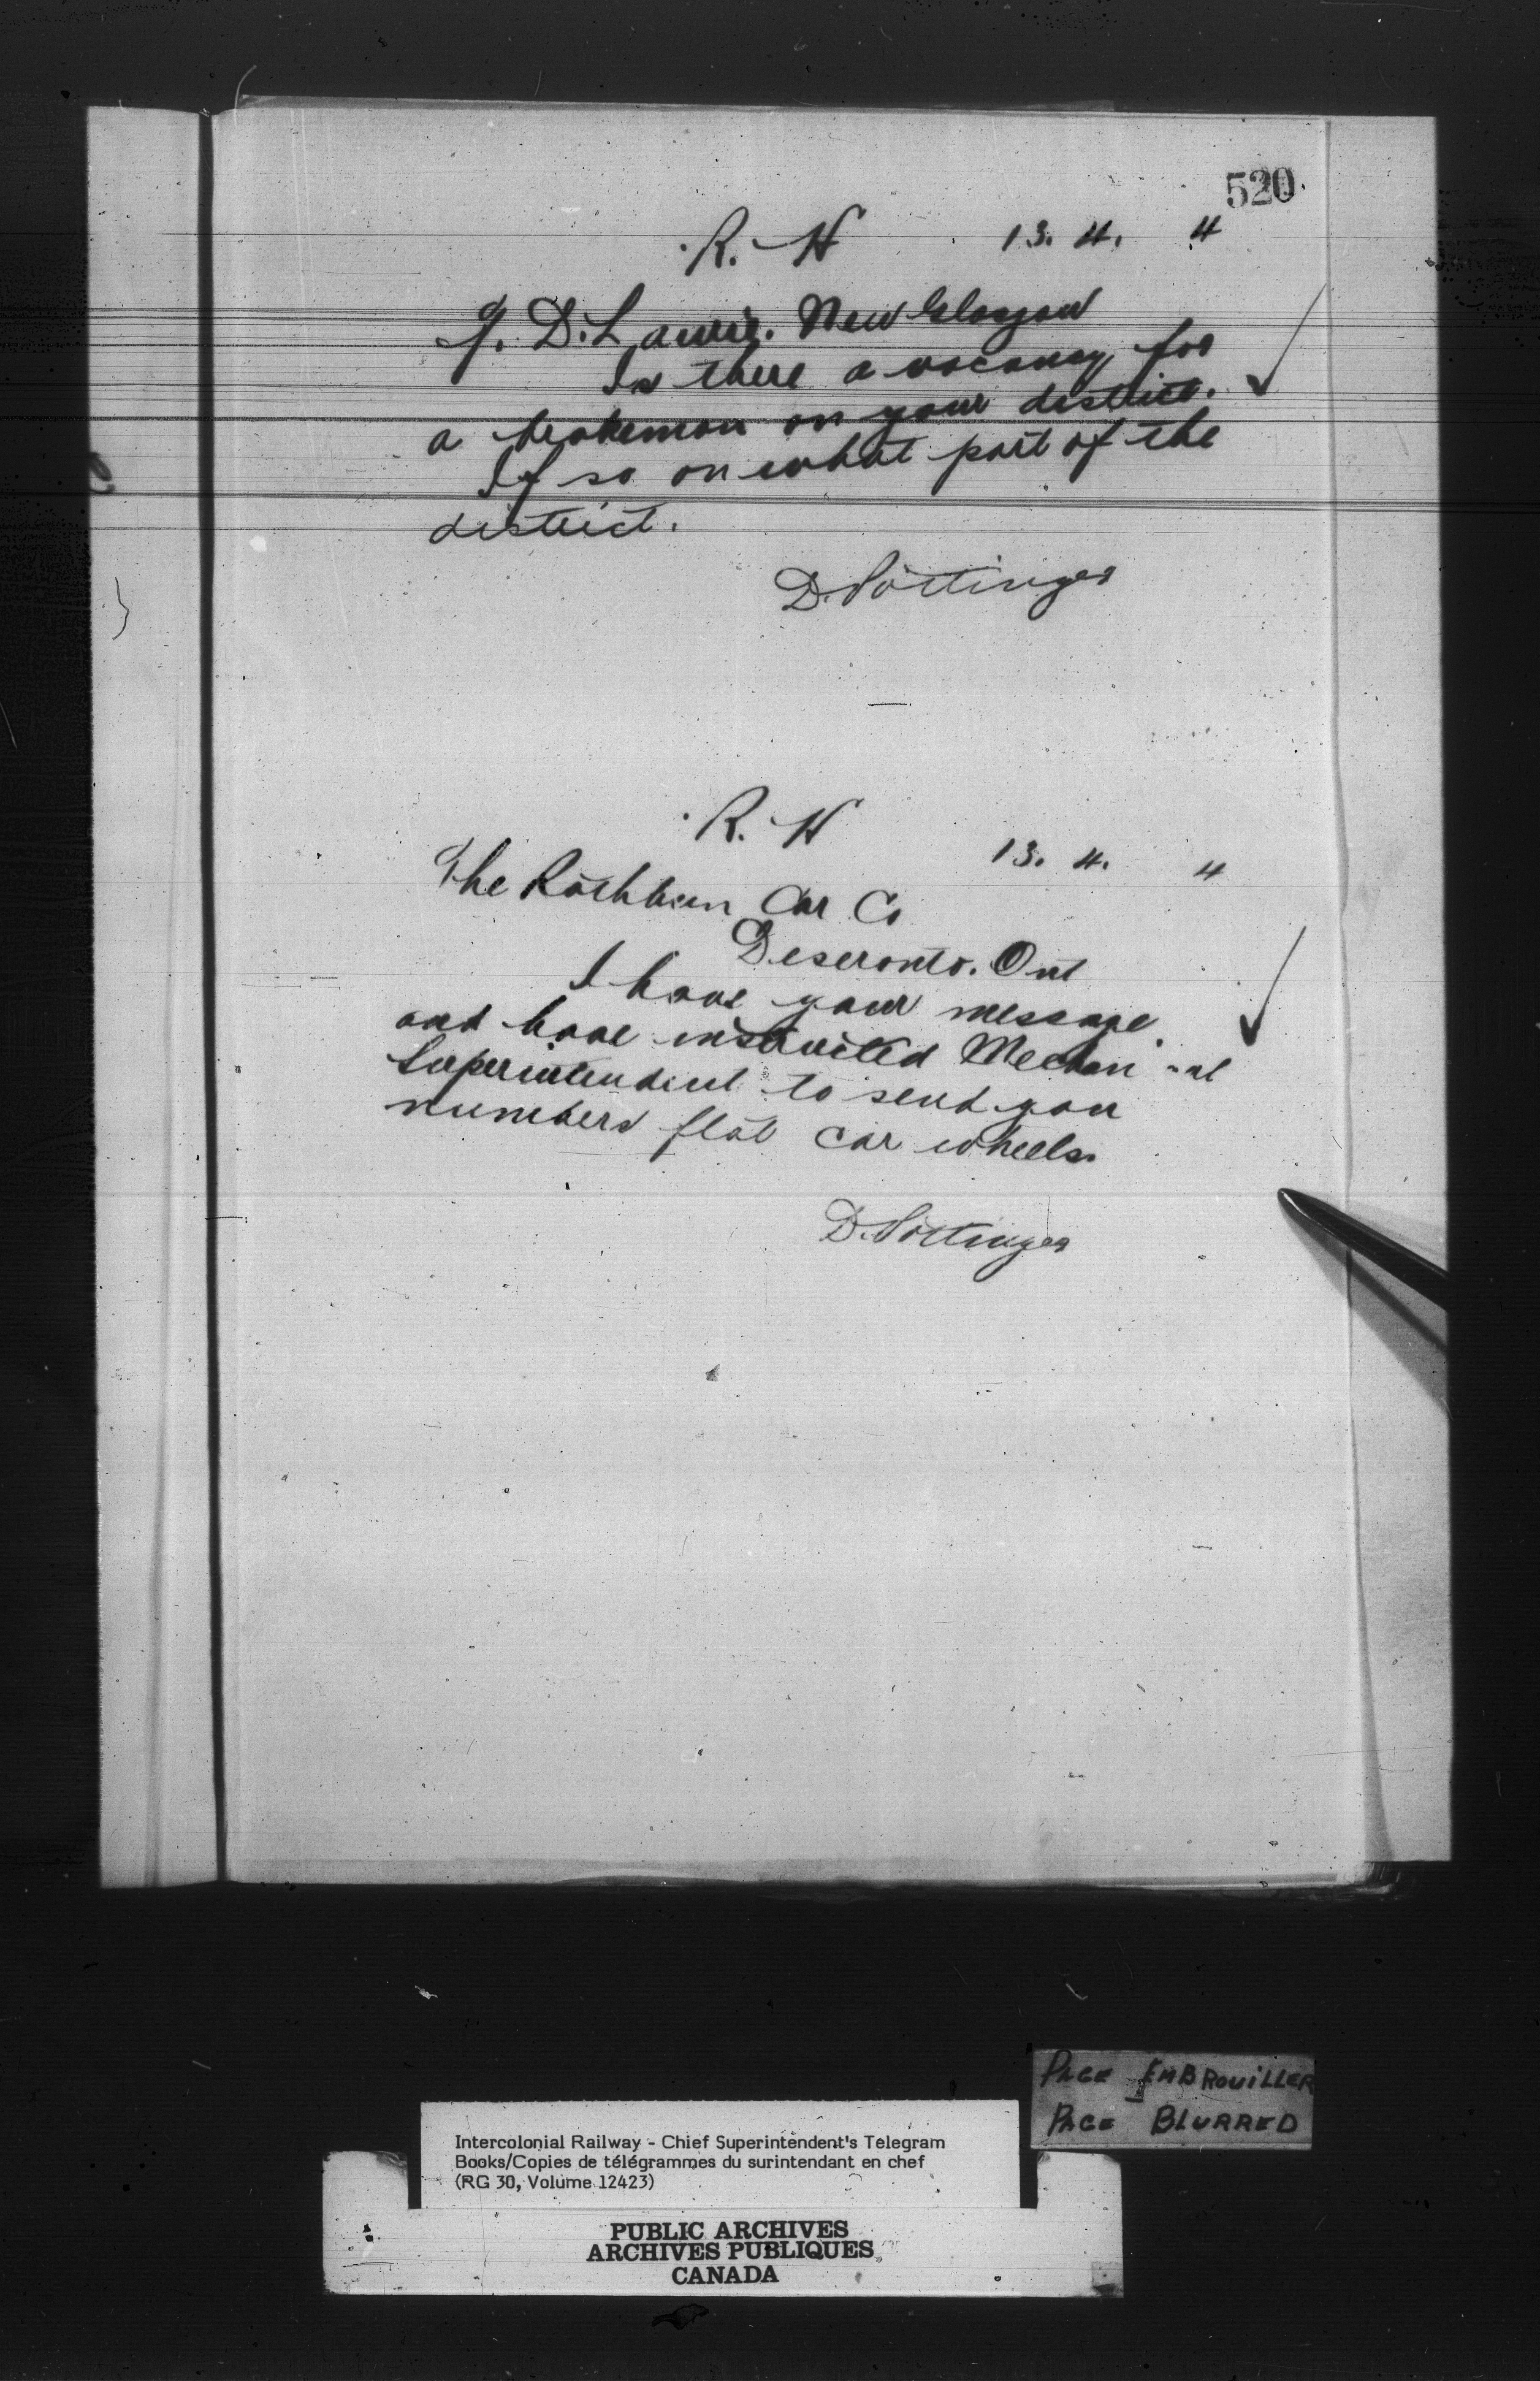 520.
R. H 13. 4. 4
J. D. Lawrie. New Glasgow
Is there a vacancy for
a brakeman on your district.
If so on what part of the
district.
D. Pottinger
R. H
13. 4. 4
The Rathbun Car Co
Deseronto. Ont
I have your message
and have instructed Mechanical
Superintendent to send you
numbers flat car wheels.
D. Pottinger
PAGE EMBROUILLER
PAGE BLURRED
Intercolonial Railway - Chief Superintendent's Telegram
Books/Copies de télégrammes du surintendant en chef
(RG 30, Volume 12423)
PUBLIC ARCHIVES
ARCHIVES PUBLIQUES
CANADA